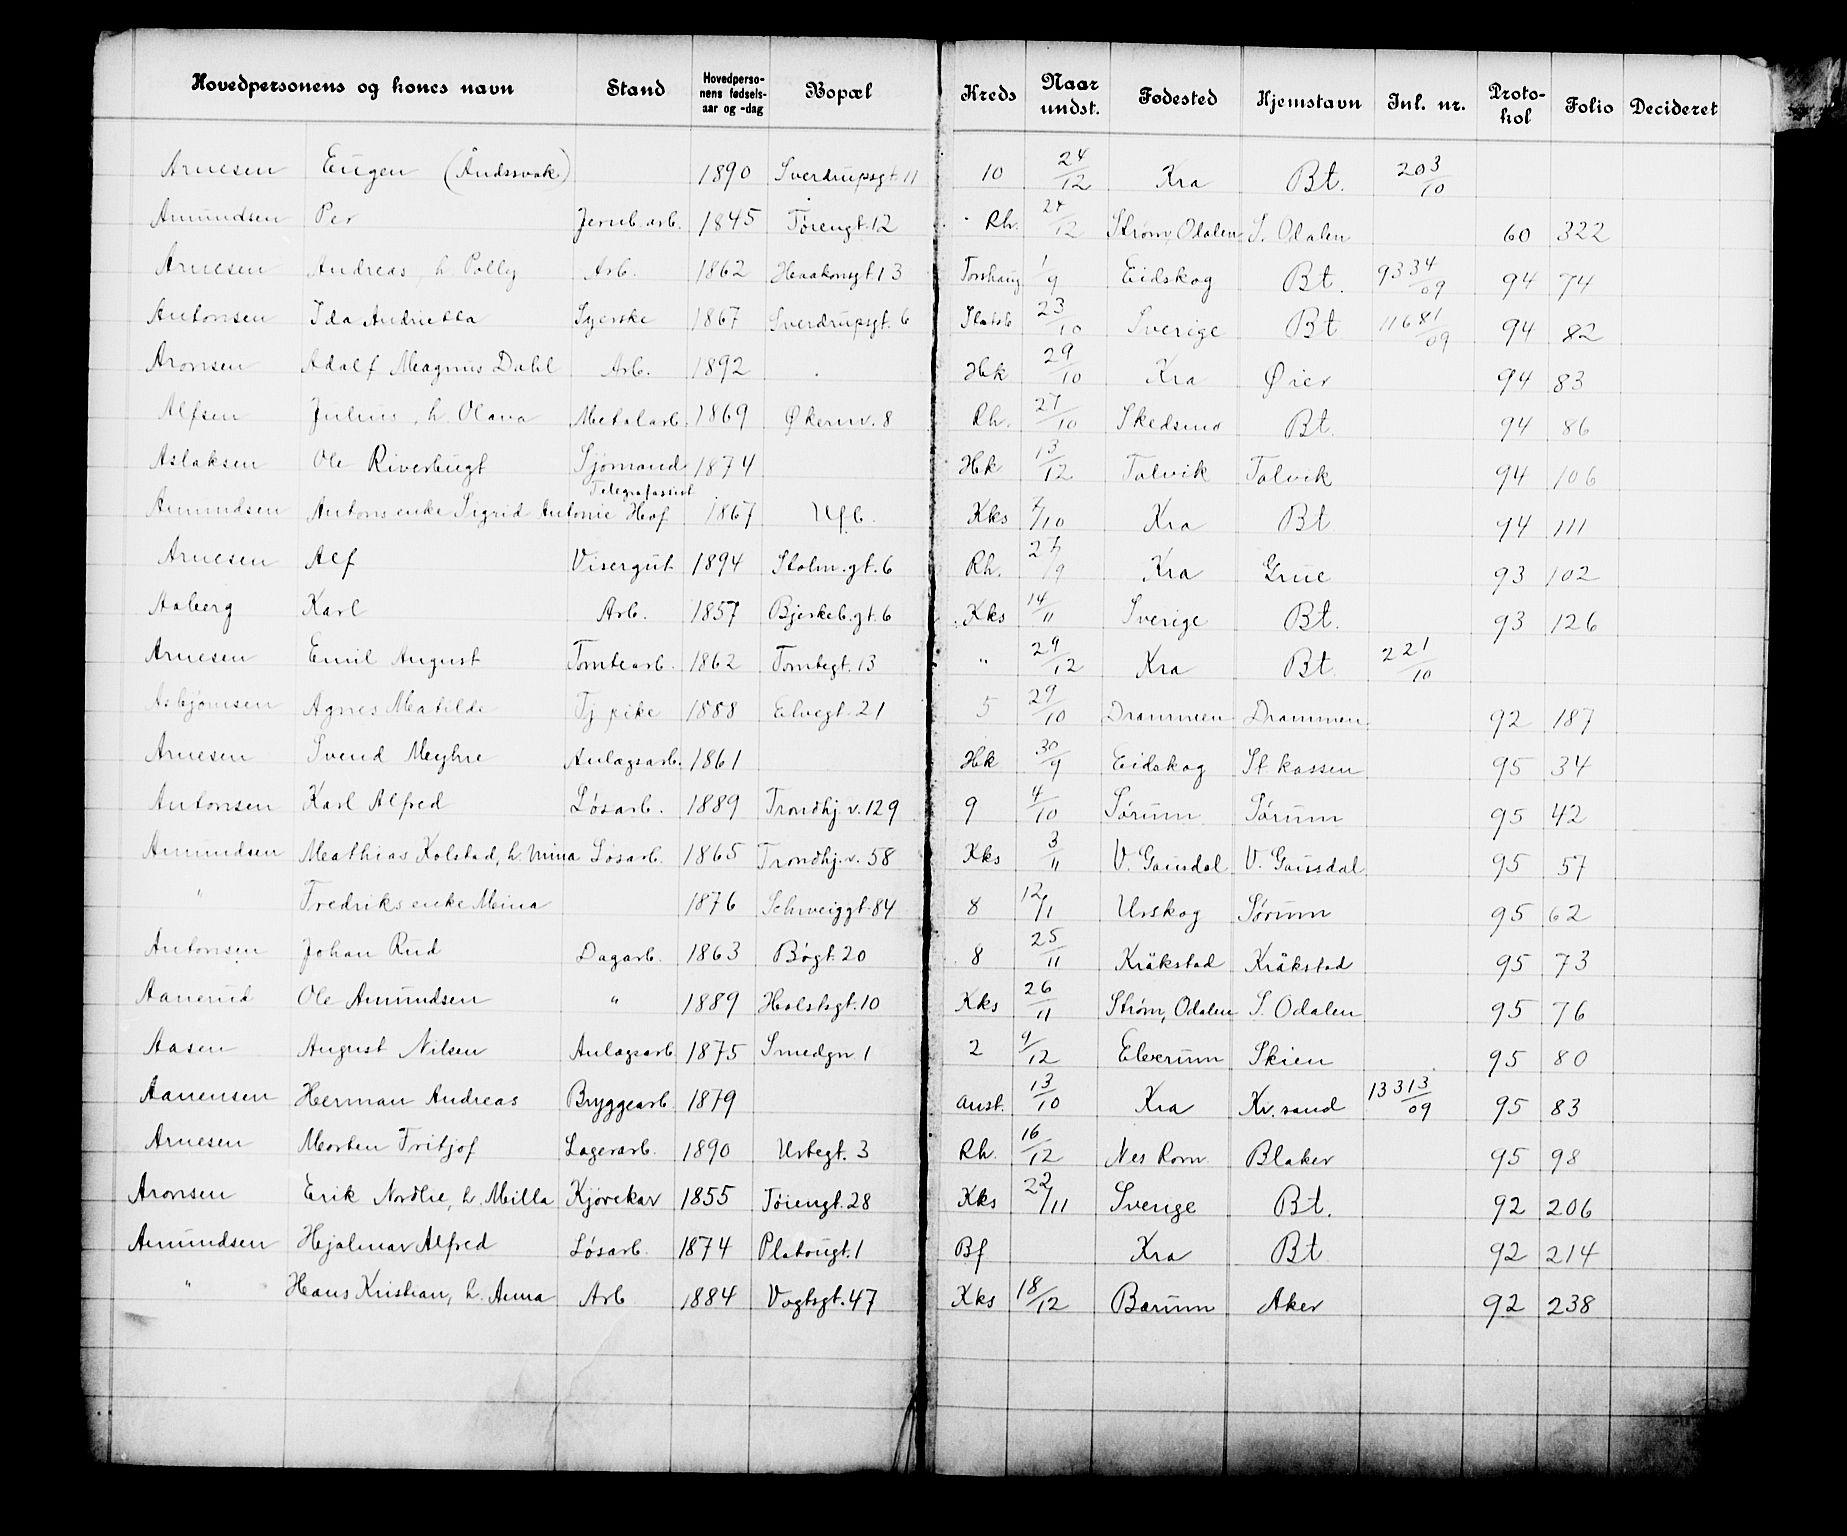 Hovedpersonens og kones navn | Stand | Hovedperso-nens fødsels-aar og -dag | Bopæl | Kreds | Naar undst. | Fødested | Hjemstavn | Inl. nr. | Proto-kol | Folio | Decideret
Arnesen Eugen (Åndssvak) 1890 Sverdrupsgt. 11 10 24/12 Kra Bt. 203/10
Amundsen Per Jernb.arb. 1845 Tøiengt. 12 Rh. 12 Strøm, Odalen S. Odalen 60 322
Arnesen Andreas, h. Polly Arb. 1862 Haakonsgt. 13 Torshaug 1/9 Eidskog Bt. 9334/09 94 74
Antonsen Ida Andrietta Syerske 1867 Sverdrupsgt. 6 23/10 Sverige Bt 11681/09 94 82
Aronsen Adolf Magnus Dahl Arb. 1892 Hk 29/10 Kra Øier 94 83
Alfsen Julius, h. Olava Metalarb. 1869 Økernv. 8 Rh. 27/10 Skedsmo Bt. 94 86
Aslaksen Ole Riverbugt Sjømand 1874 Hk 13/12 Talvik Talvik 94 106
Telegrafassist
Amundsen Antons enke Sigrid Antonie Hof 1867 Ufb. Kks /10 Kra Bt 94 111
Arnesen Alf Visergut 1894 Stolm.gt. 6 Rh. /9 Kra Grue 93 102
Aaberg Karl Arb. 1857 Bjerkeb.gt. 6 Kks 14/11 Sverige Bt. 93 126
Arnesen Emil August Tomtearb. 1862 Tomtegt. 13 " 29/12 Kra Bt. 221/10
Asbjørnsen Agnes Matilde Tj pike 1888 Elvegt. 21 5 29/10 Drammen Drammen 92 187
Arnesen Svend Meyhre Anlægsarb. 1861 Hk 30/9 Eidskog St. kassen 95 34
Antonsen Karl Alfred Løsarb. 1889 Trondhj. v. 129 9 4/10 Sørum Sørum 95 42
Amundsen Mathias Kolstad, h. Mina Løsarb. 1865 Trondhj. v. 58 Kks 3/11 V. Gausdal V. Gausdal 95 57
" Fredriks enke Mina 1876 Schweiggt. 84 8 12/11 Urskog Sørum 95 62
Antonsen Johan Rud Dagarb. 1863 Bøgt. 20 8 25/11 Kråkstad Kråkstad 95 73
Aanerud Ole Amundsen " 1889 Holstsgt. 10 Kks 26/11 Strøm, Odalen S. Odalen 95 76
Aasen August Nilsen Anlægsarb 1875 Smedgn 1 2 9/12 Elverum Skien 95 80
Aanensen Herman Andreas Bryggearb. 1879 Anst. 13/10 Kra Kr.sand 13313/09 95 83
Arnesen Morten Fritjof Lagerarb. 1890 Urtegt. 3 Rh. 16/12 Nes Rom. Blaker 95 98
Aronsen Erik Nordlie, h. Milla Kjørekar 1855 Tøiengt. 28 Kks 22/11 Sverige Bt. 92 206
Amundsen Hjalmar Alfred Løsarb. 1874 Platougt. 1 Bf Kra Bt 92 214
" Hans Kristian, h. Anna Arb 1884 Vogtsgt. 47 Kks 18/12 Bærum Aker 92 238